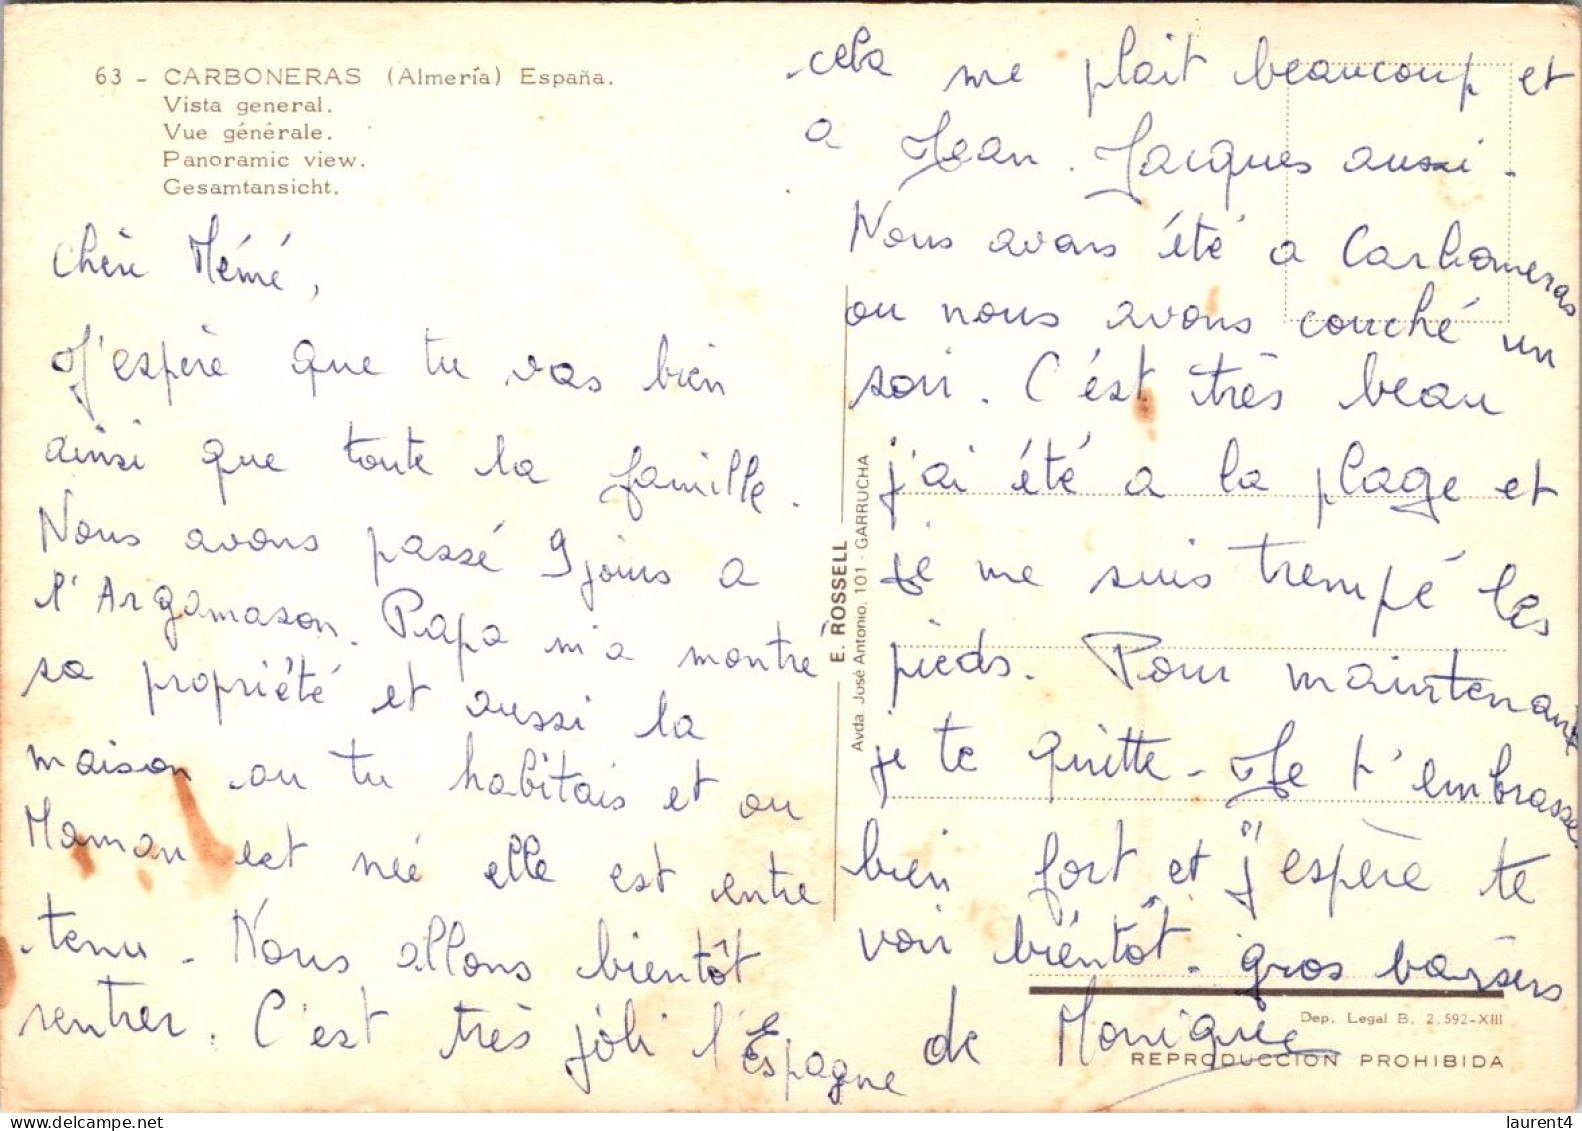 63 - CARBONERAS (Almería) España.
Vista general.
Vue générale.
Panoramic view.
Gesamtansicht.
Chère Mémé,
J'espère que tu vas bien
ainsi que toute la famille.
Nous avons passé 9 jours a
l'Argamason. Papa m'a montré
sa propriété et aussi la
maison ou tu habitais et ou
Maman est né elle est entre
tenu. Nous allons bientôt
rentrer. C'est très joli l'Espagne
cela me plait beaucoup et
a Jean. Jacques aussi.
Nous avons été a Carboneras
ou nous avons couché un
soir. C'ést très beau
j'ai été a la plage et
je me suis trempé les
pieds. Pour maintenant
je te quitte - Je t'embrasse
bien fort et j'espère te
voir bientôt. gros baisers
de Monique
E. ROSSELL
Avda José Antonio, 101 - GARRUCHA
Dep. Legal B. 2.592-XIII
REPRODUCCION PROHIBIDA
laurent4